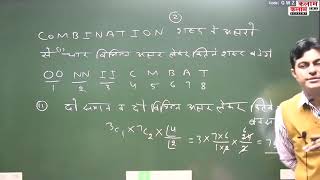 ②
COMBINATION शब्द के अक्षरों
से चार विभिन्न अक्षर लेकर कितने शब्द बनेंगे
OO NN II C M B A T
1 2 3 4 5 6 7 8
(ii) दो समान व दो विभिन्न अक्षर लेकर
³C₁ × ⁷C₂ × 4/2 = 3 × 7×6/1×2 × 24/2 = 7
कलाम